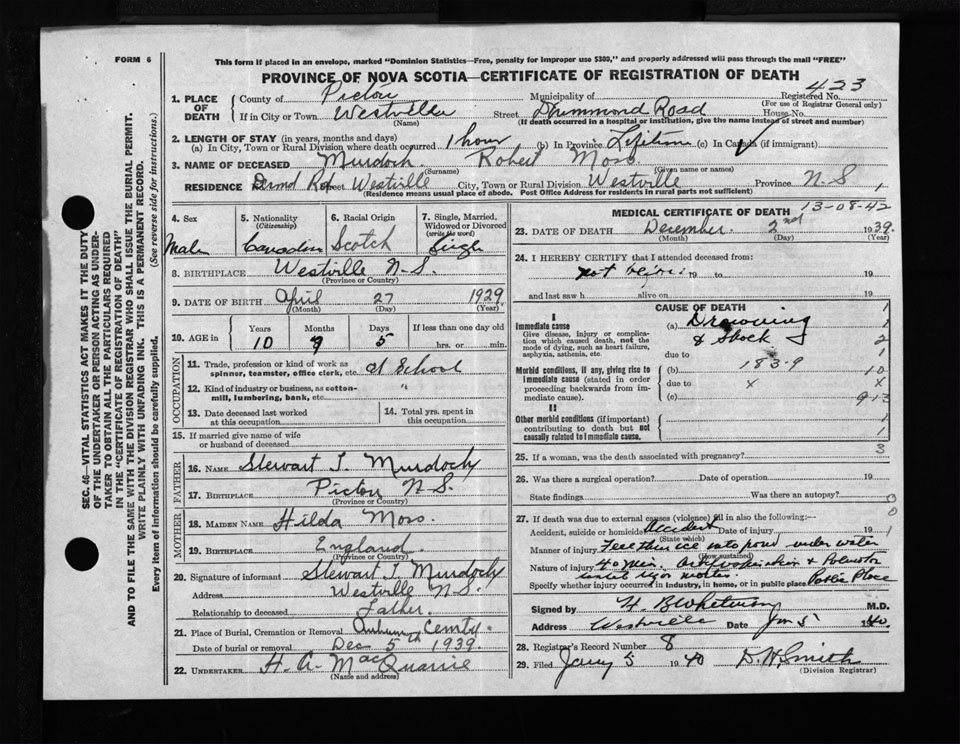 FORM 6
This form if placed in an envelope, marked "Dominion Statistics—Free, penalty for improper use $300," and properly addressed will pass through the mail "FREE"
PROVINCE OF NOVA SCOTIA—CERTIFICATE OF REGISTRATION OF DEATH
423
SEC. 46—VITAL STATISTICS ACT MAKES IT THE DUTY
OF THE UNDERTAKER OR PERSON ACTING AS UNDER-
TAKER TO OBTAIN ALL THE PARTICULARS REQUIRED
IN THE "CERTIFICATE OF REGISTRATION OF DEATH"
AND TO FILE THE SAME WITH THE DIVISION REGISTRAR WHO SHALL ISSUE THE BURIAL PERMIT.
WRITE PLAINLY WITH UNFADING INK. THIS IS A PERMANENT RECORD.
Every item of information should be carefully supplied. (See reverse side for instructions.)
1. PLACE OF DEATH County of Pictou Municipality of Registered No.
(For use of Registrar General only)
If in City or Town Westville Street Drummond Road House No.
(Name) (If death occurred in a hospital or institution, give the name instead of street and number)
2. LENGTH OF STAY (in years, months and days)
(a) In City, Town or Rural Division where death occurred 1 hour (b) In Province Lifetime (c) In Canada (if immigrant)
3. NAME OF DECEASED Murdoch Robert Moss
(Surname) (Given name or names)
RESIDENCE Drmd Rd Street Westville City, Town or Rural Division Westville Province N.S.
(Residence means usual place of abode. Post Office Address for residents in rural parts not sufficient)
4. Sex
Male
5. Nationality
(Citizenship)
Canadian
6. Racial Origin
Scotch
7. Single, Married,
Widowed or Divorced
(write the word)
Single
8. BIRTHPLACE Westville N.S.
(Province or Country)
9. DATE OF BIRTH April 27 1929
(Month) (Day) (Year)
10. AGE in Years Months Days If less than one day old
10 5 hrs. or min.
OCCUPATION
11. Trade, profession or kind of work as
spinner, teamster, office clerk, etc. at School
12. Kind of industry or business, as cotton-
mill, lumbering, bank, etc. "
13. Date deceased last worked
at this occupation
14. Total yrs. spent in
this occupation
15. If married give name of wife
or husband of deceased
FATHER
16. NAME Stewart J. Murdoch
17. BIRTHPLACE Pictou N.S.
(Province or Country)
MOTHER
18. MAIDEN NAME Hilda Moss.
19. BIRTHPLACE England.
(Province or Country)
20. Signature of informant Stewart J. Murdoch
Address Westville N.S.
Relationship to deceased Father.
21. Place of Burial, Cremation or Removal Cemty.
Date of burial or removal Dec 5th 1939.
22. UNDERTAKER H. A. MacQuarrie
(Name and address)
MEDICAL CERTIFICATE OF DEATH 13-08-42
23. DATE OF DEATH December 2nd 1939.
(Month) (Day) (Year)
24. I HEREBY CERTIFY that I attended deceased from:
not 19 to 19
and last saw h alive on 19
CAUSE OF DEATH
I
Immediate cause
Give disease, injury or complica-
tion which caused death, not the
mode of dying, such as heart failure,
asphyxia, asthenia, etc.
(a) Drowning
& Shock
due to
Morbid conditions, if any, giving rise to
immediate cause (stated in order
proceeding backwards from im-
mediate cause).
(b) 183-9
due to x
(c)
II
Other morbid conditions (if important)
contributing to death but not
causally related to immediate cause.
1
1
2
1
10
x
1
1
3
25. If a woman, was the death associated with pregnancy?
26. Was there a surgical operation? Date of operation 19
State findings Was there an autopsy?
27. If death was due to external causes (violence) fill in also the following:—
Accident, suicide or homicide Accident Date of injury 19
(State which)
Manner of injury Fell thru ice into pond under water
(How sustained)
Nature of injury 40 min. & Pulmotor
until rigor mortis.
Specify whether injury occurred in industry, in home, or in public place Public Place
Signed by H. B. Whitman M.D.
Address Westville Date Jan 5 1940.
28. Registrar's Record Number 8
29. Filed Jany 5 1940 D. H. Smith
(Division Registrar)